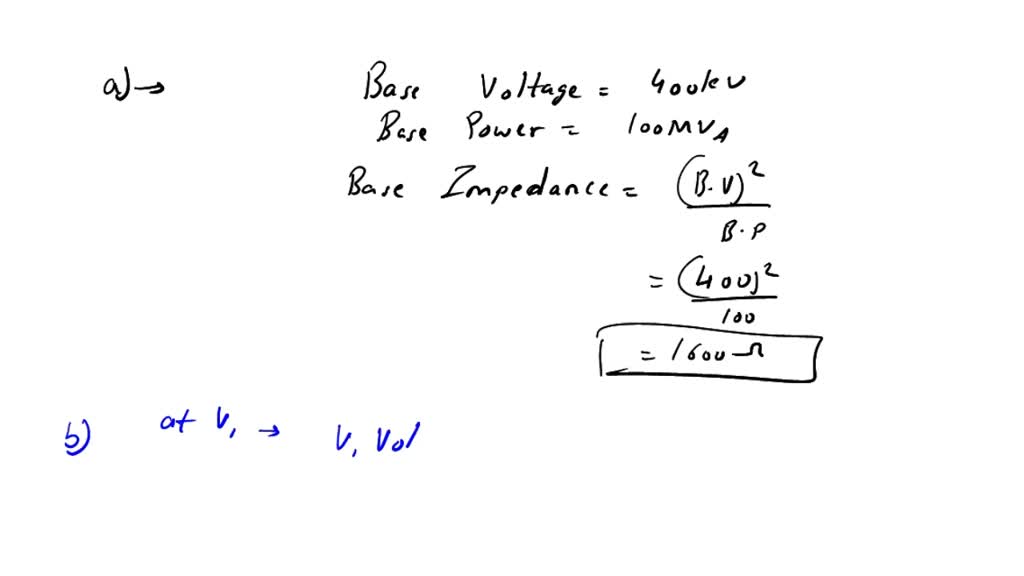 a) → Base Voltage = 400kV
Base Power = 100MVA
Base Impedance = (B.V)²
B.P
= (400)²
100
= 1600 Ω
b) at V₁ → V₁ Vol